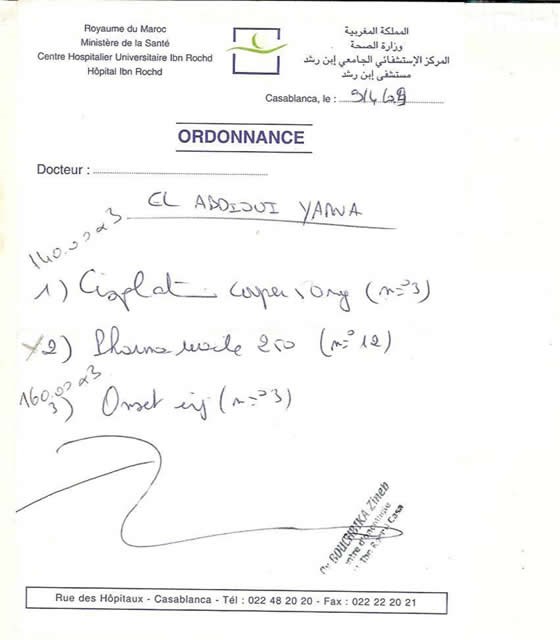 Royaume du Maroc
Ministère de la Santé
Centre Hospitalier Universitaire Ibn Rochd
Hôpital Ibn Rochd
المملكة المغربية
وزارة الصحة
المركز الإستشفائي الجامعي إبن رشد
مستشفى إبن رشد
Casablanca, le :
ORDONNANCE
Docteur :
EL
140.00 x3
1) (n=°3)
2) 250 (n=°12)
160.00 x3
3) Onset inj (n=°3)
Dr BOUCHBIKA Zineb
Ibn Rochd Casa
Rue des Hôpitaux - Casablanca - Tél : 022 48 20 20 - Fax : 022 22 20 21